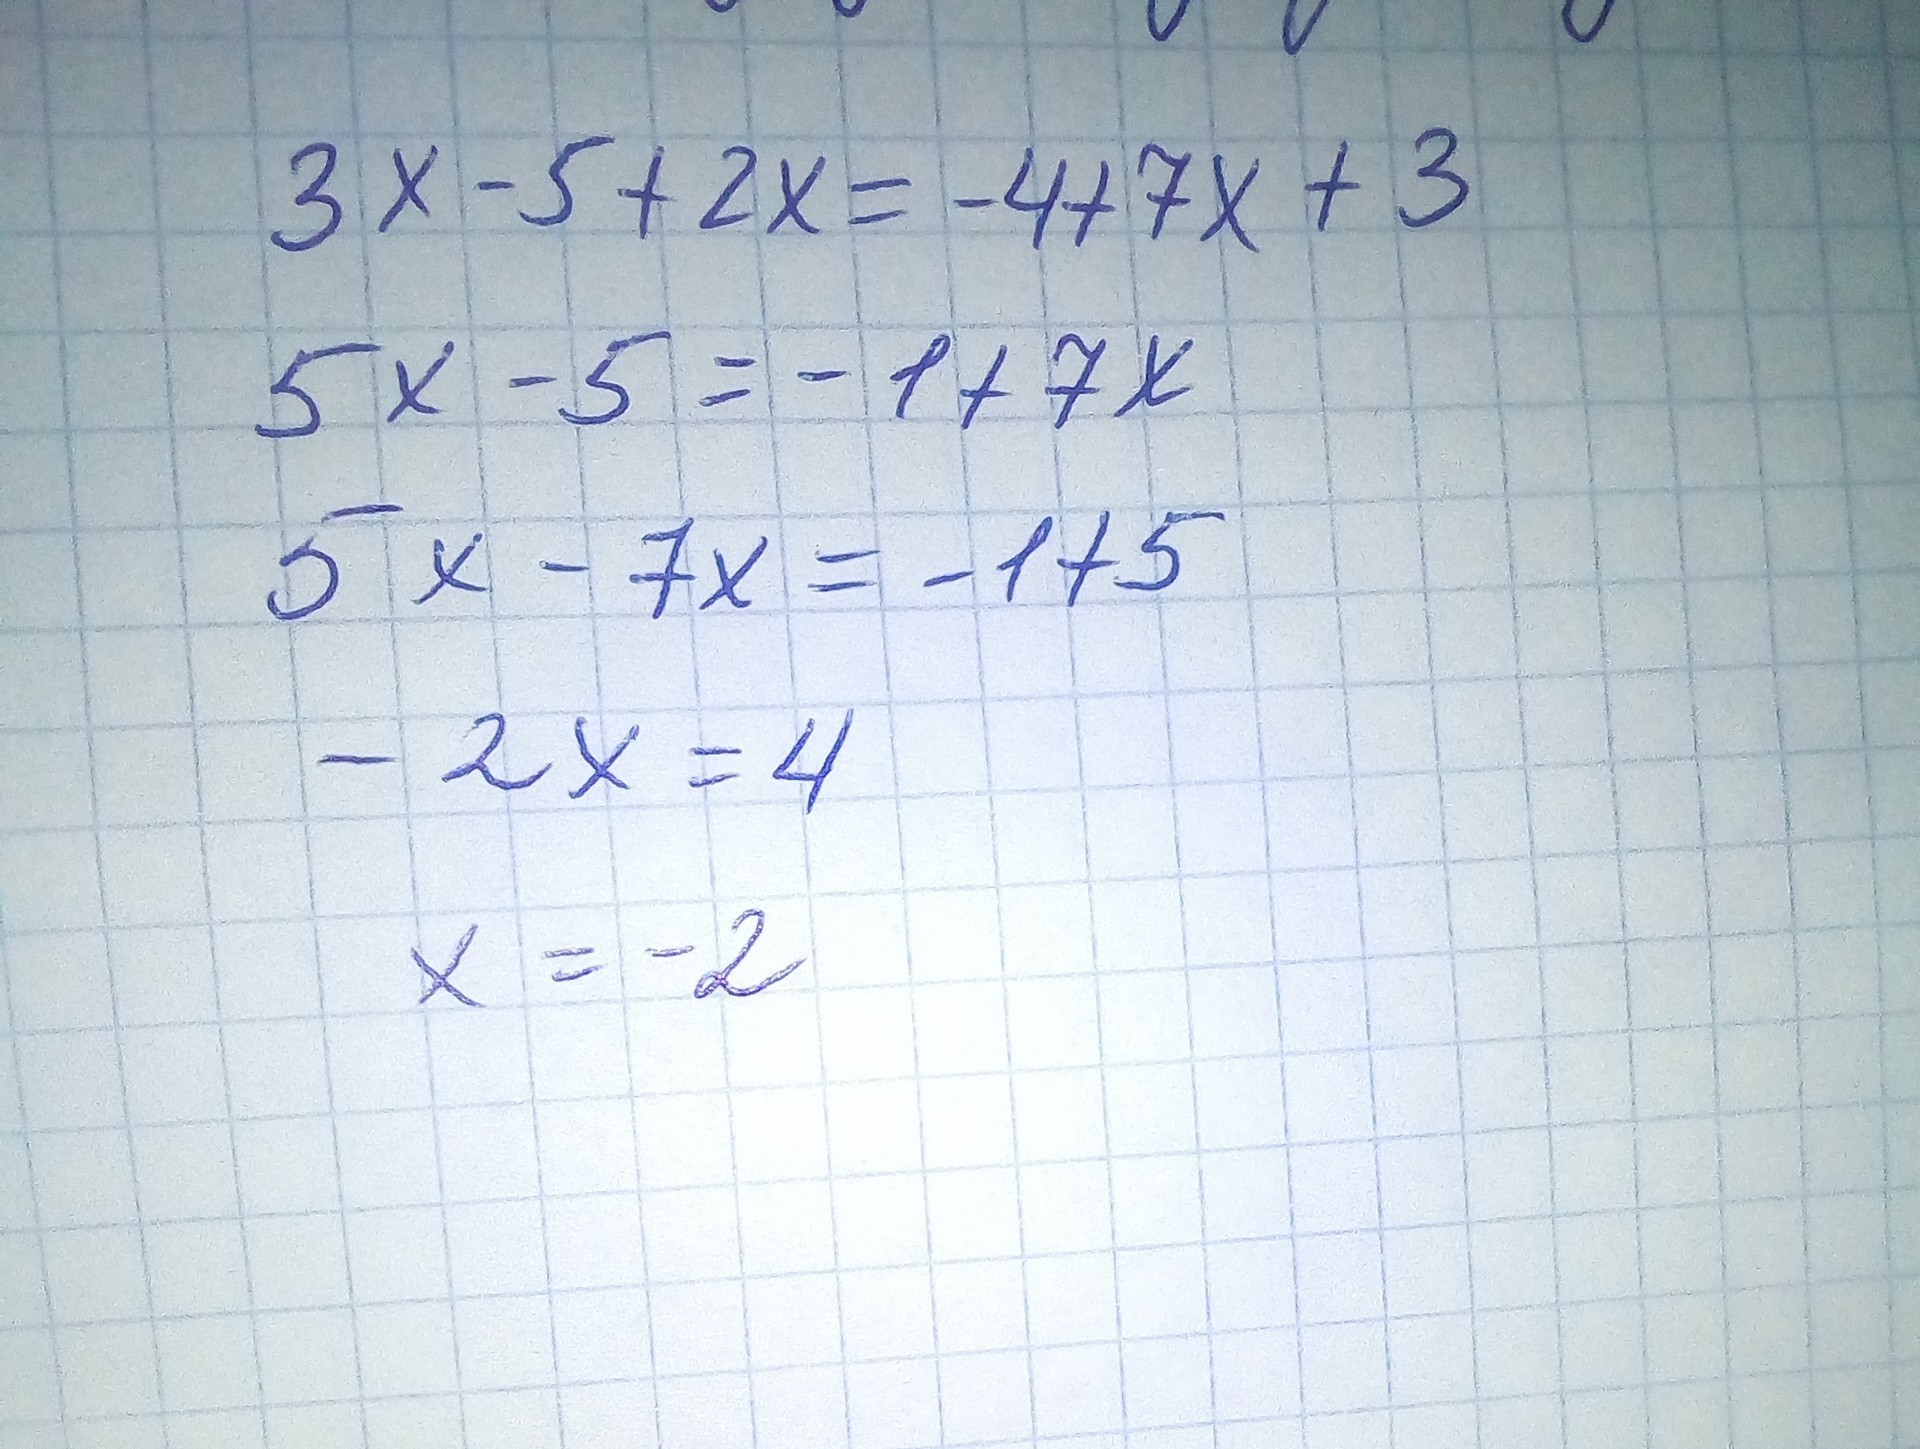 3x-5+2x=-4+7x+3
5x-5=-1+7x
5x-7x=-1+5
-2x=4
x=-2